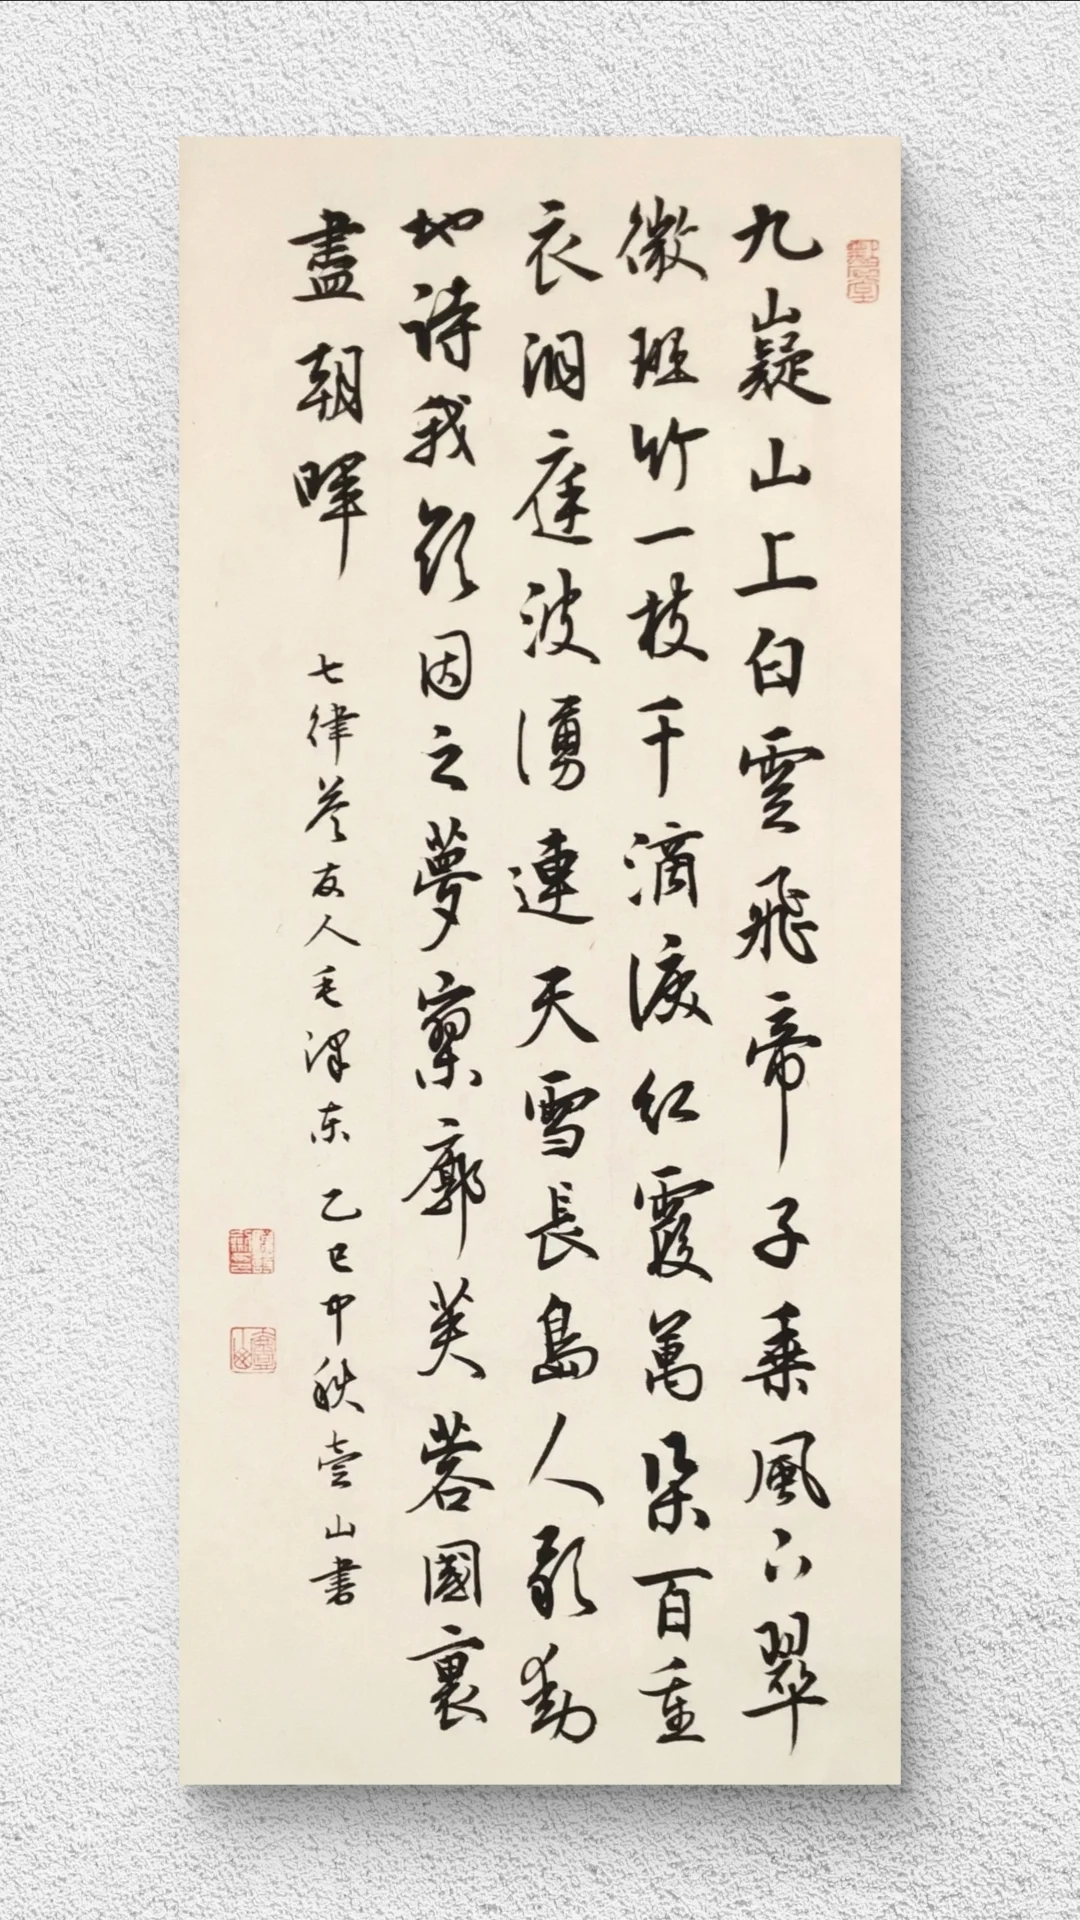 九嶷山上白雲飛帝子乘風下翠
微斑竹一枝千滴淚紅霞萬朵百重
衣洞庭波湧連天雪長島人歌動
地詩我欲因之夢寥廓芙蓉國裏
盡朝暉
七律答友人毛澤东乙巳中秋壹山書